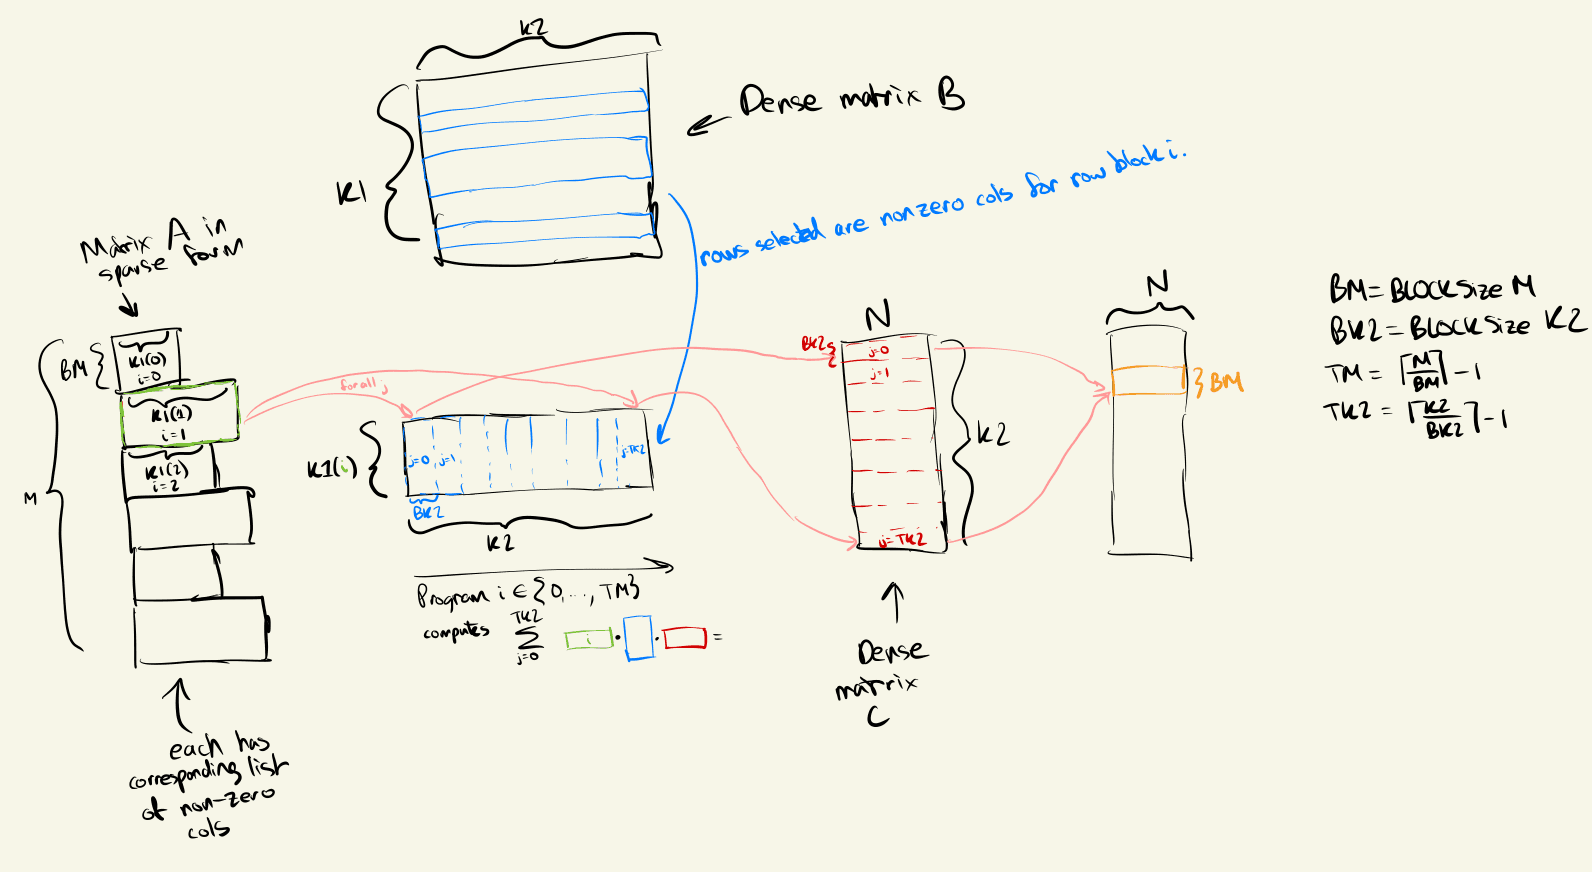 K2
Dense matrix B
K1
rows selected are nonzero cols for row block i.
Matrix A in
sparse form
BM
K1(0)
i=0
K1(1)
i=1
K1(2)
i=2
M
each has
corresponding list
of non-zero
cols
for all j
K1(i)
j=0
j=1
j=TK2
BK2
K2
Program i ∈ {0,..., TM}
computes
TK2
∑
j=0
i
· · =
N
BK2
j=0
j=1
j=TK2
K2
Dense
matrix
C
N
BM
BM = BLOCKSize M
BK2 = BLOCKSize K2
TM = ⌈M/BM⌉ - 1
TK2 = ⌈K2/BK2⌉ - 1